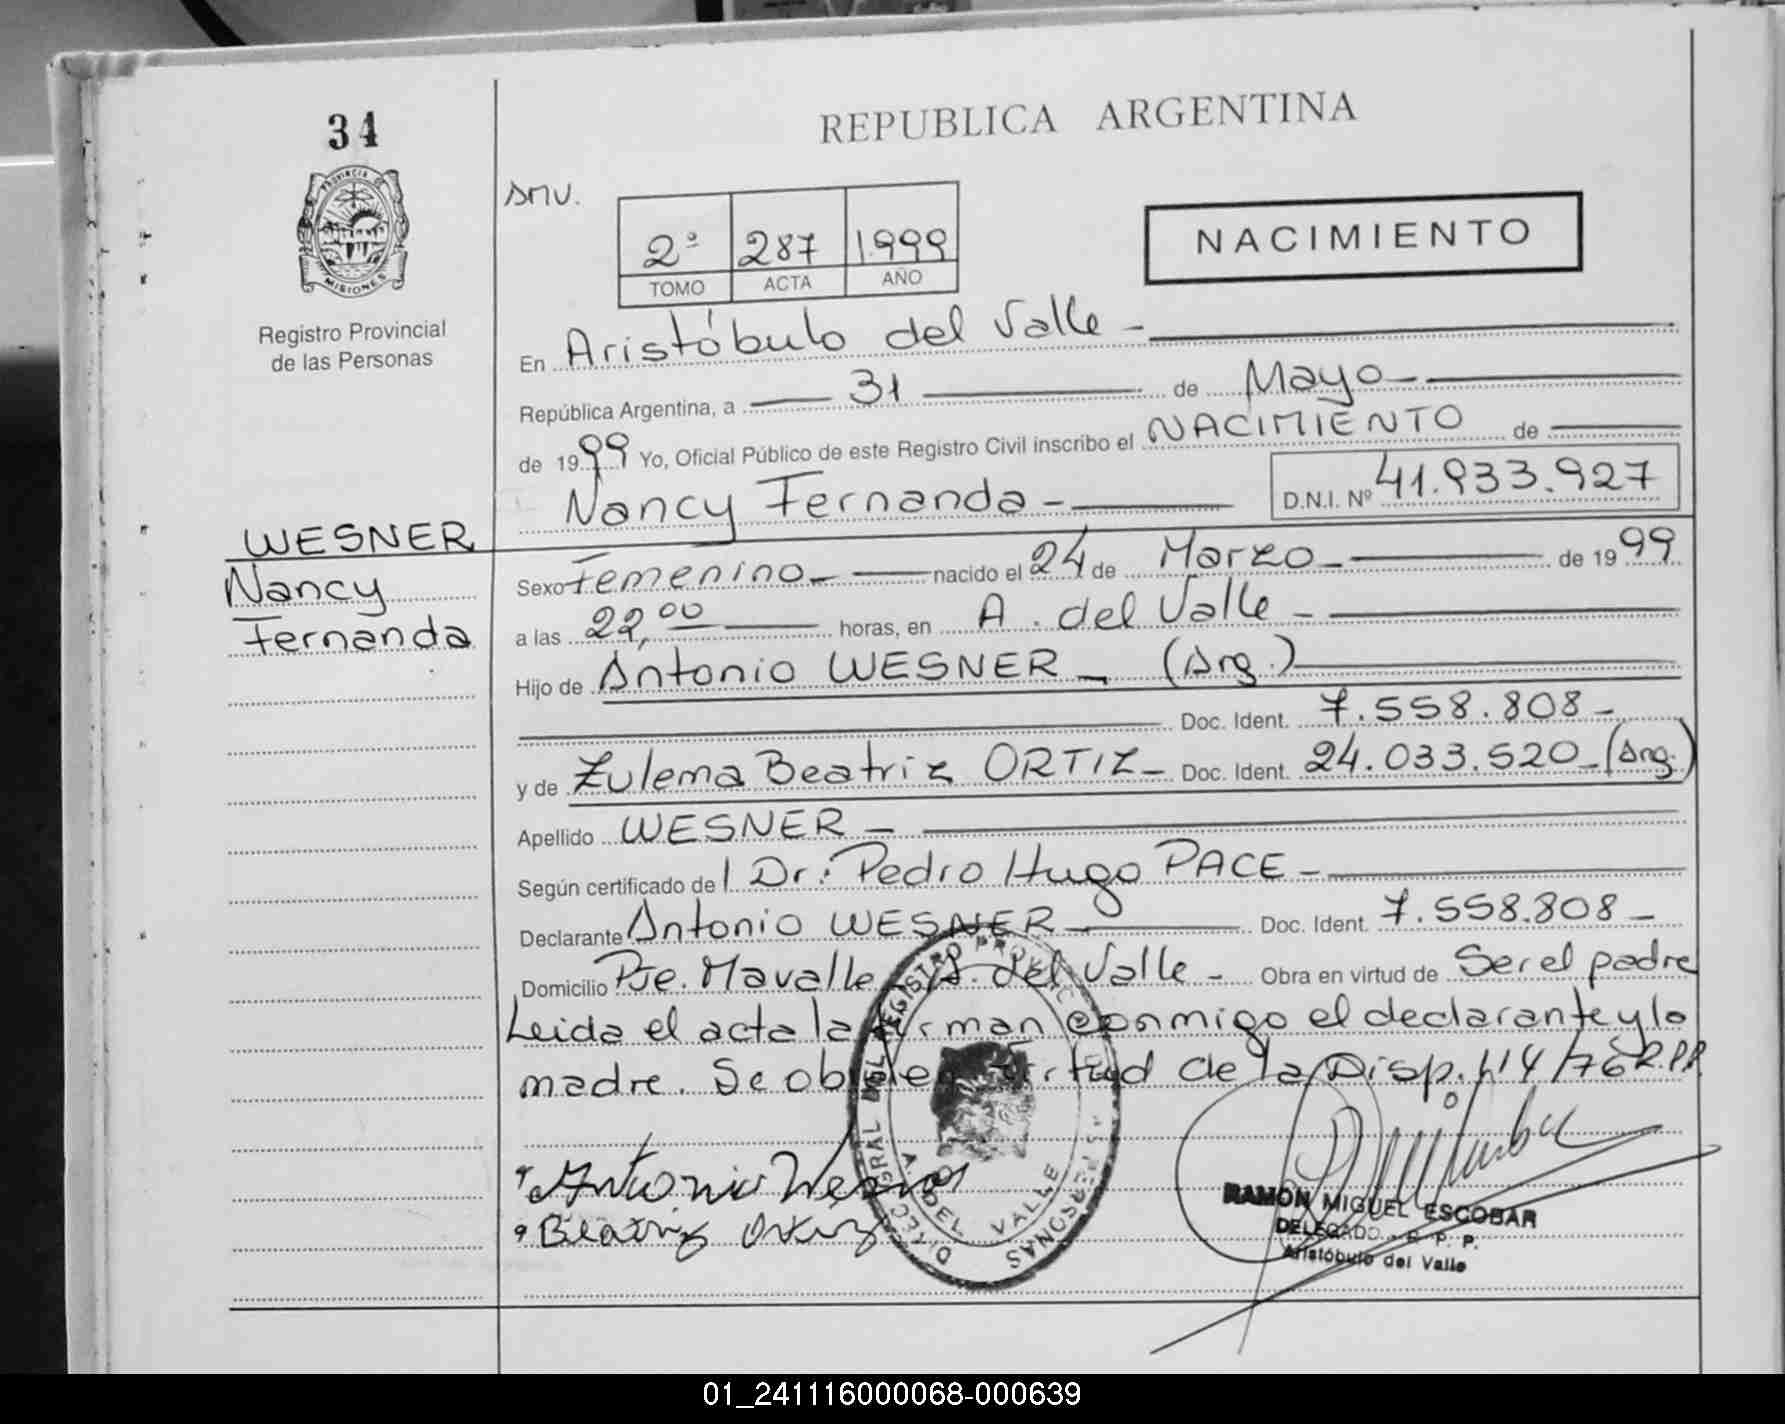 34
REPUBLICA ARGENTINA
PROVINCIA DE
MISIONES
Registro Provincial
de las Personas
SMV.
2º 287 1.999
TOMO ACTA AÑO
NACIMIENTO
En Aristóbulo del Valle -
República Argentina, a 31 de Mayo -
de 1999 Yo, Oficial Público de este Registro Civil inscribo el NACIMIENTO de
Nancy Fernanda - D.N.I. Nº 41.933.927
WESNER
Nancy
Fernanda
Sexo Femenino - nacido el 24 de Marzo - de 1999
a las 22,00 horas, en A. del Valle -
Hijo de Antonio WESNER - (Arg.)
Doc. Ident. 7.558.808 -
y de Zulema Beatriz ORTIZ - Doc. Ident. 24.033.520 - (Arg.)
Apellido WESNER -
Según certificado del Dr: Pedro Hugo PACE -
Declarante Antonio WESNER Doc. Ident. 7.558.808 -
Domicilio Pje. Mavalle A. del Valle - Obra en virtud de Ser el padre
Leida el acta la firman conmigo el declarante y la
madre. Se ob en virtud de la Disp. 114/76 R.P.P.
Antonio Wesner
Beatriz Ortiz
DIREC GRAL DEL REGISTRO PROVINC DE PERSONAS
A. DEL VALLE
RAMON MIGUEL ESCOBAR
DELEGADO - R. P. P.
Aristóbulo del Valle
01_241116000068-000639